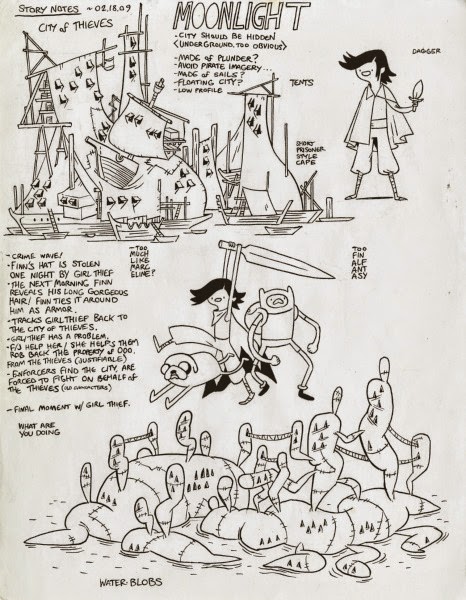 STORY NOTES ~ 02.18.09
CITY OF THIEVES
MOONLIGHT
• CITY SHOULD BE HIDDEN
(UNDERGROUND, TOO OBVIOUS)
- MADE OF PLUNDER?
- AVOID PIRATE IMAGERY...
- MADE OF SAILS?
- FLOATING CITY?
- LOW PROFILE
TENTS
DAGGER
SHORT
PRISONER
STYLE
CAPE
- CRIME WAVE!
- FINN'S HAT IS STOLEN
ONE NIGHT BY GIRL THIEF
- THE NEXT MORNING FINN
REVEALS HIS LONG GORGEOUS
HAIR / FINN TIES IT AROUND
HIM AS ARMOR.
- TRACKS GIRL THIEF BACK TO
THE CITY OF THIEVES.
- GIRL THIEF HAS A PROBLEM.
F/J HELP HER / SHE HELPS THEM
ROB BACK THE PROPERTY OF OOO.
FROM THE THIEVES (JUSTIFIABLE)
- ENFORCERS FIND THE CITY, ARE
FORCED TO FIGHT ON BEHALF OF
THE THIEVES (OLD CHARACTERS)
- FINAL MOMENT W/ GIRL THIEF.
WHAT ARE
YOU DOING
- TOO
MUCH
LIKE
MARC
ELINE?
TOO
FIN
ALF
ANT
ASY
WATER BLOBS